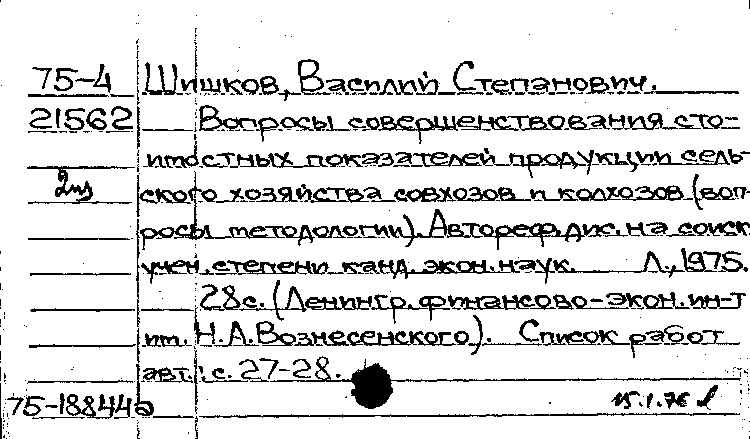 75-4 Шишков, Василий Степанович.
21562 Вопросы совершенствования сто-
имостных показателей продукции сель-
2 из ского хозяйства совхозов и колхозов (воп-
росы методологии). Автореф. дис. на соиск
учен. степени канд. экон. наук. Л., 1975.
28с. (Ленингр. финансово-экон. ин-т
им. Н.А. Вознесенского). Список работ
авт.: с. 27-28.
75-18844б 15.1.76